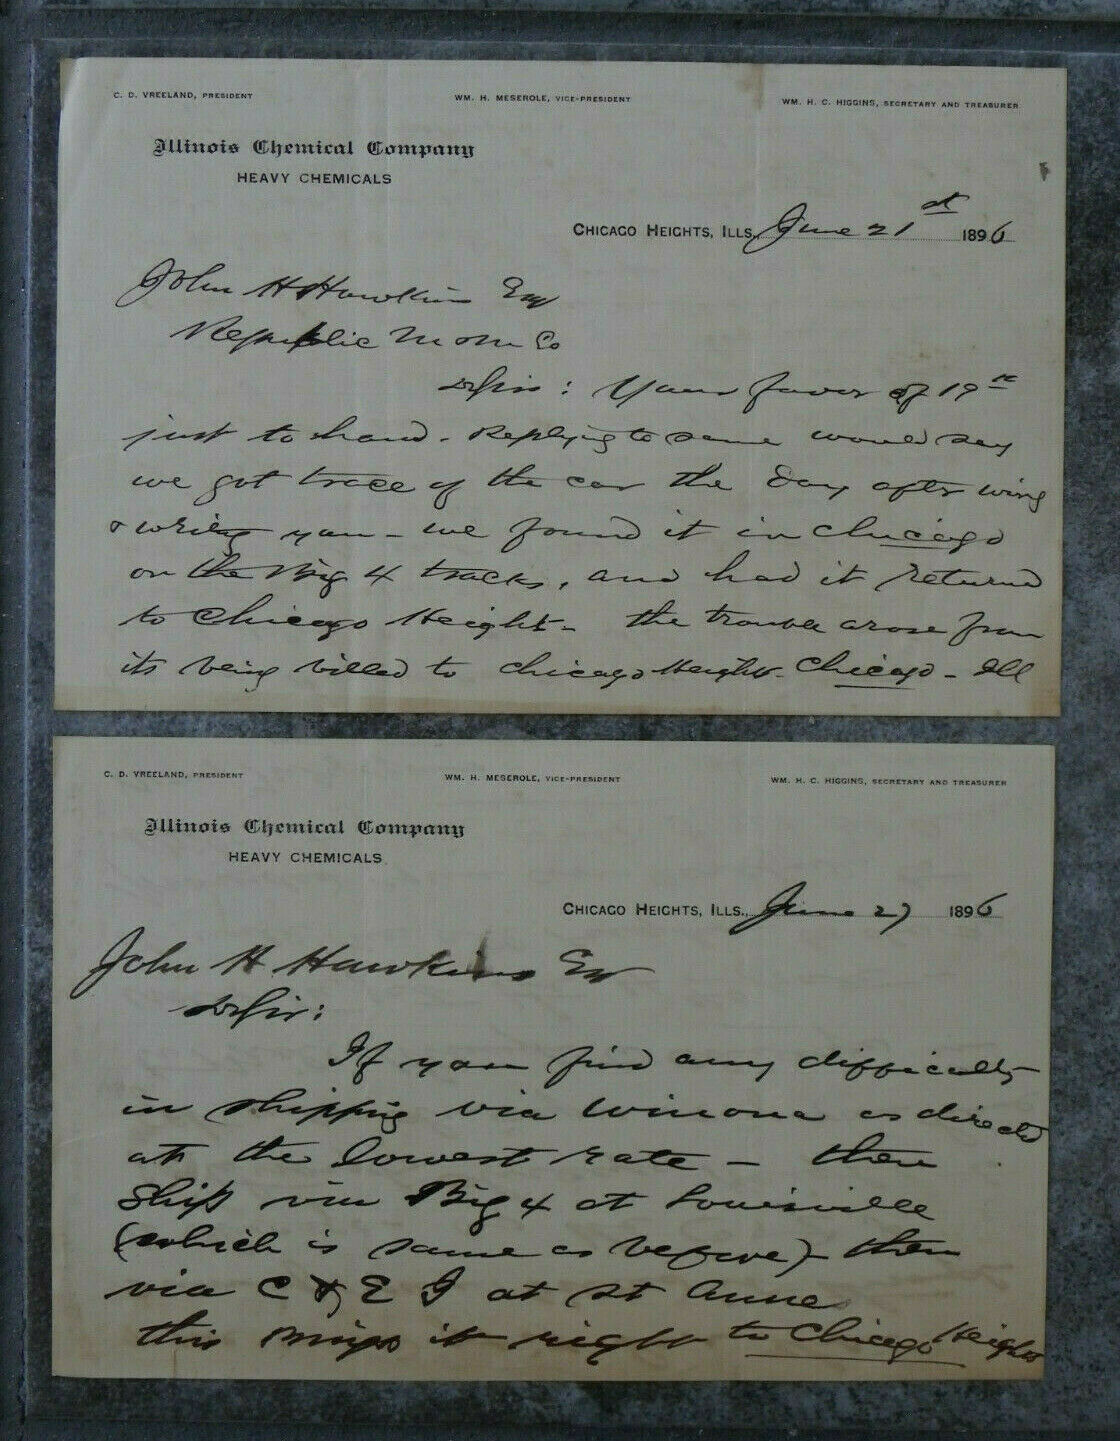 C. D. VREELAND, PRESIDENT WM. H. MESEROLE, VICE-PRESIDENT WM. H. C. HIGGINS, SECRETARY AND TREASURER
Illinois Chemical Company
HEAVY CHEMICALS
CHICAGO HEIGHTS, ILLS., June 21st 1896
John H Hawkins Esq
Republic M & M Co
Dr Sir: Your favor of 19th
just to hand. Replying to same would say
we got trace of the car the day after wiring
& writing you - we found it in Chicago
on the Big 4 tracks, and had it returned
to Chicago Heights - the trouble arose from
its being billed to Chicago Heights - Chicago - Ill
C. D. VREELAND, PRESIDENT WM. H. MESEROLE, VICE-PRESIDENT WM. H. C. HIGGINS, SECRETARY AND TREASURER
Illinois Chemical Company
HEAVY CHEMICALS
CHICAGO HEIGHTS, ILLS., June 27 1896
John H Hawkins Esq
Dr Sir:
If you find any difficulty
in shipping via Winona as directed
at the lowest rate - then
ship via Big 4 at Louisville
(which is same as before) - then
via C & E I at St Anne
this brings it right to Chicago Heights